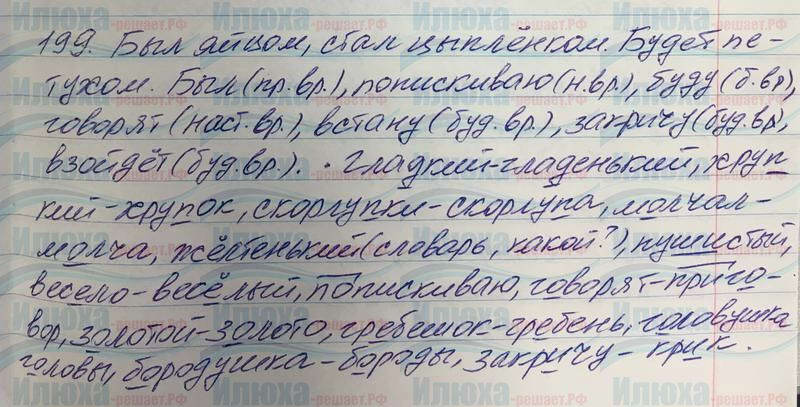 199. Был яйцом, стал цыплёнком. Будет пе-
тухом. Был (пр.вр.), попискиваю (н.вр.), буду (б.вр),
говорят (наст.вр.), встану (буд.вр.), закричу (буд.вр,
взойдёт (буд.вр.). • Гладкий-гладенький, хруп
кий-хрупок, скорлупки-скорлупа, молчал-
молча, жёлтенький (словарь, какой?), пушистый,
весело-весёлый, попискиваю, говорят-приго-
вор, золотой-золото, гребешок-гребень, головушка
головы, бородушка-бороды, закричу-крик.